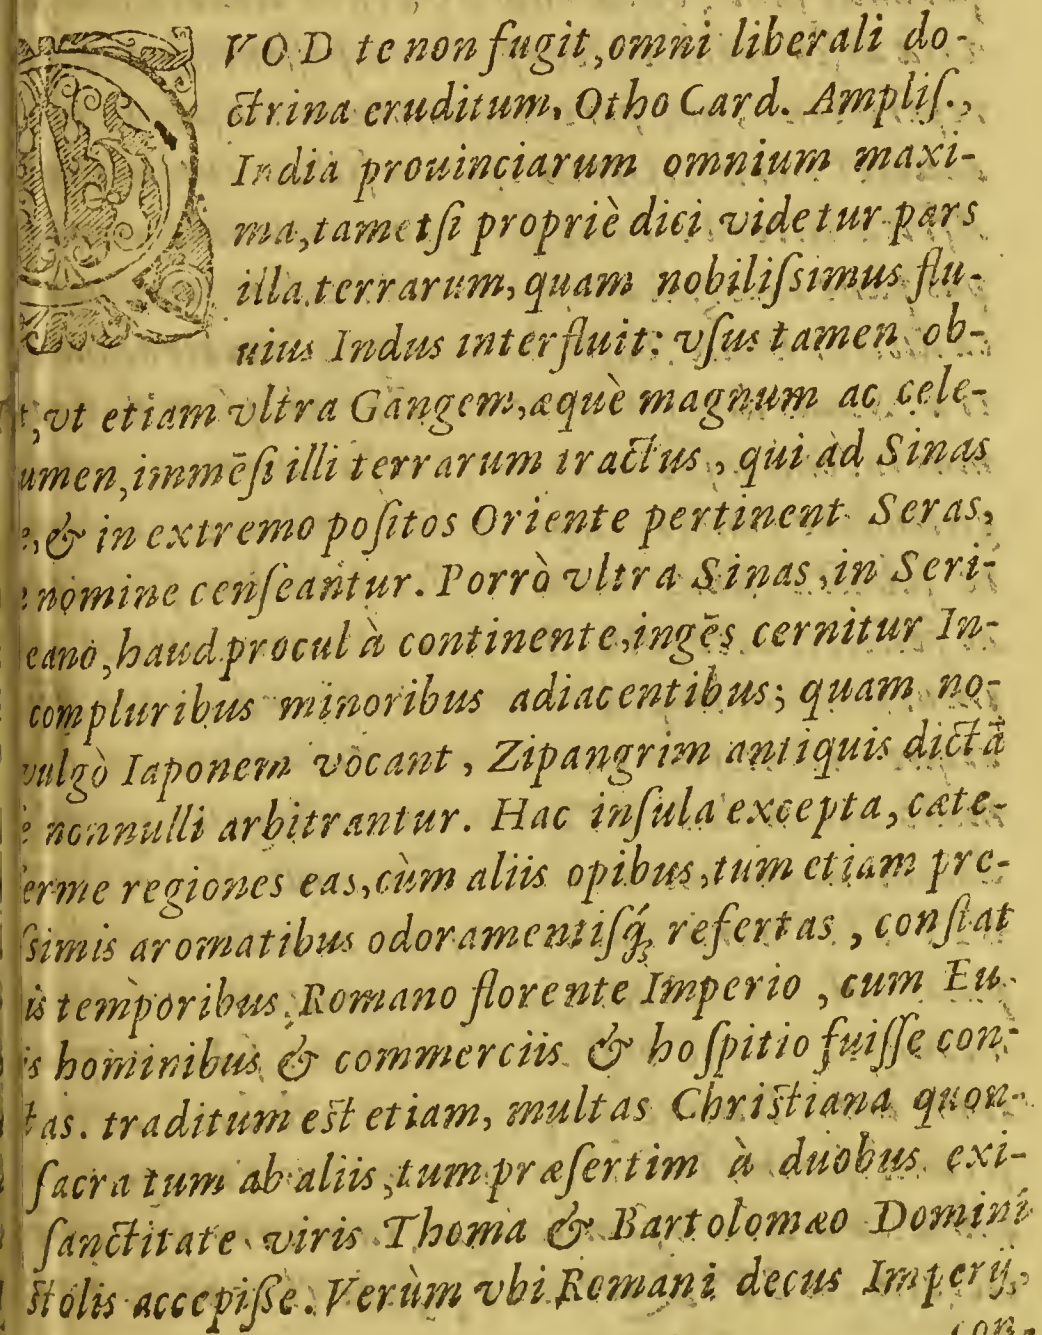 QVOD te non fugit, omni liberali do-
ctrina eruditum, Otho Card. Ampliſ.,
India prouinciarum omnium maxi-
ma, tametſi propriè dici videtur pars
illa terrarum, quam nobiliſsimus flu-
uius Indus interfluit: vſus tamen ob-
t, vt etiam vltra Gangem, æquè magnum ac cele-
umen, immēſi illi terrarum tractus, qui ad Sinas
, & in extremo poſitos Oriente pertinent Seras,
nomine cenſeantur. Porrò vltra Sinas, in Seri-
eano, haud procul à continente, ingēs cernitur In-
compluribus minoribus adiacentibus; quam no-
vulgò Iaponem vocant, Zipangrim antiquis dictā
nonnulli arbitrantur. Hac inſula excepta, cæte-
erme regiones eas, cùm aliis opibus, tum etiam pre-
ſsimis aromatibus odoramentiſq́; refertas, conſtat
is temporibus, Romano florente Imperio, cum Eu-
is hominibus & commerciis & hoſpitio fuiſſe con-
tas. traditum eſt etiam, multas Chriſtiana quon-
ſacra tum ab aliis, tum præſertim à duobus exi-
ſanctitate viris Thoma & Bartolomæo Domini
ſtolis accepiſſe. Verùm vbi Romani decus Imperij,
con-